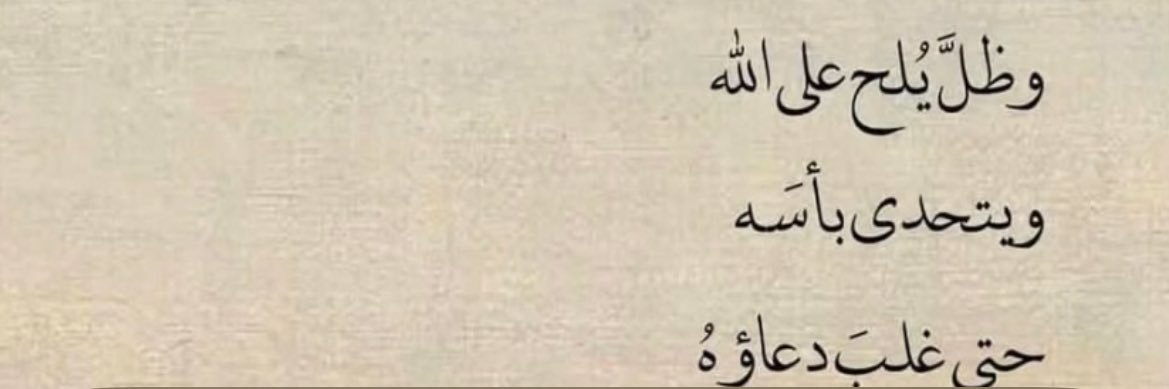 وظلَّ يُلح على الله
ويتحدى بأسَه
حتى غلبَ دعاؤهُ